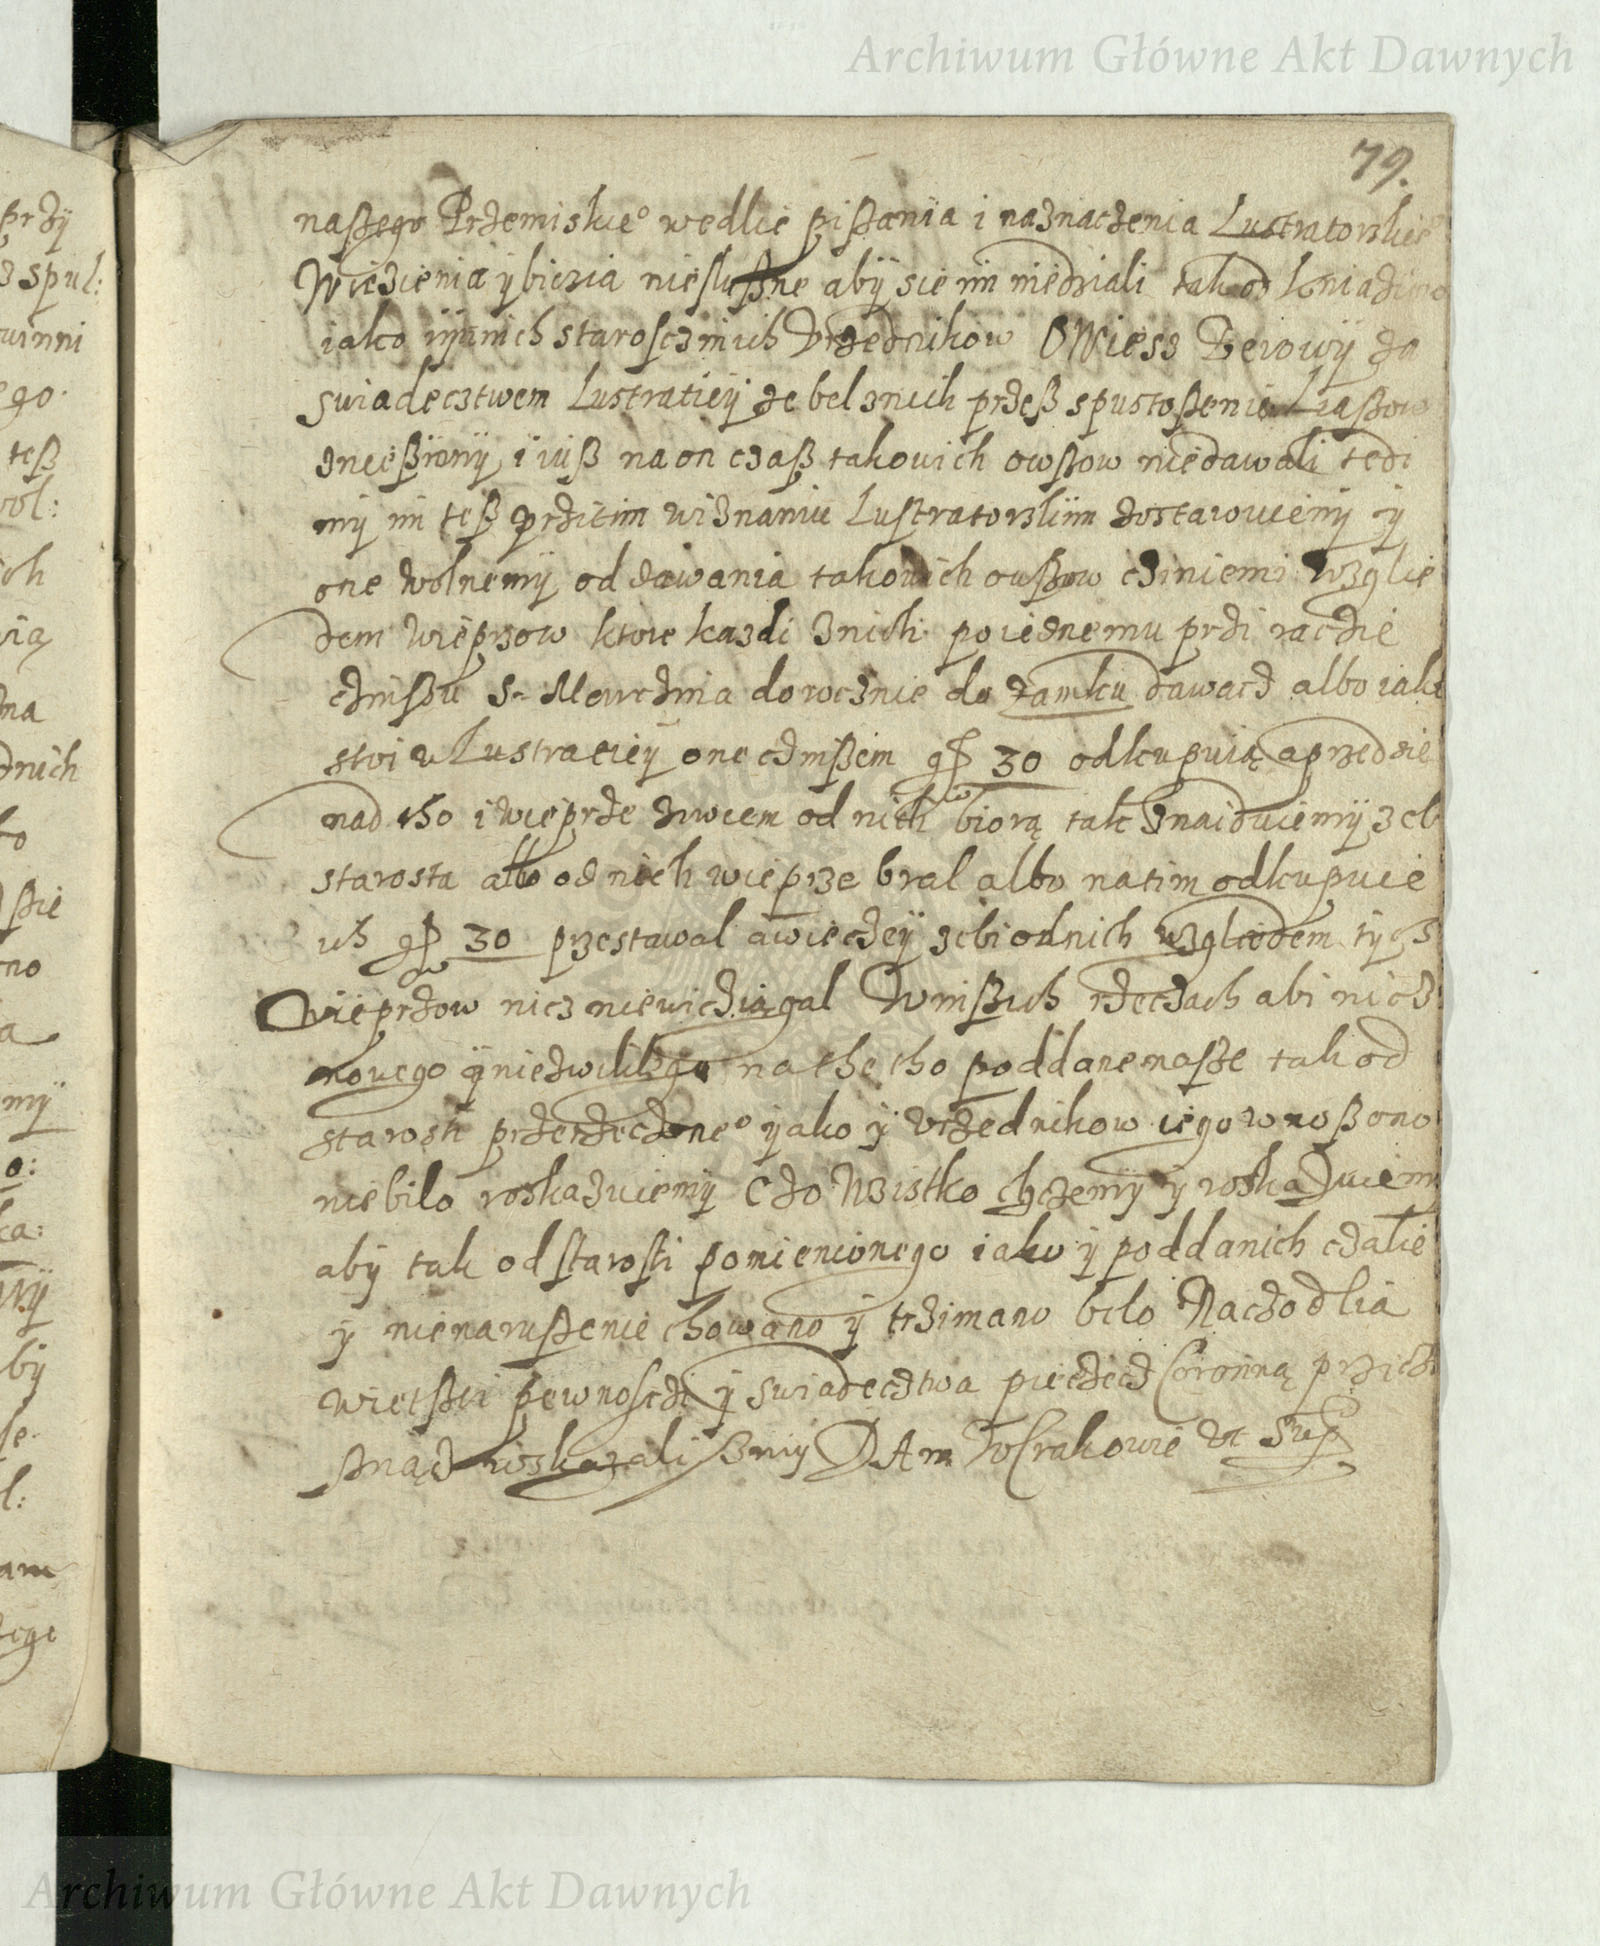 Archiwum Główne Akt Dawnych
79.
naszego Przemiskie° wedlie pissania i naznaczenia Lustratorskie°
Wiezienia ÿ bicзia niesluszne abÿ sie im niedziali tak od kniazi
iako innich starosczinich Vrzednikow OWiess Berowÿ za
swiadecztwem Lustratieÿ ze bel znich przeß spustoßenie Liassow
znießionÿ i iuß na on czaß takovich owssow niedawali tedi
mÿ im teß przitim wiznaniu Lustratorskim zostawuiemÿ ÿ
one wolnemÿ od dawania takovich owssow cziniemi Wzglie
dem Wieprzow ktore kazdi znich po iednemu przi raczie
czinßu S. Marczina dorocznie do zamku dawacz albo iako
stoi w Lustratieÿ one czinßem gß 30 odkupuią a przedsie
nad tho i wieprze zuwem od nich biorą tak znaiduiemÿ zeb
starosta albo od nich wieprze bral albo natim odkupuie
ich gß 30 przestawal a wieczeÿ zebi od nich wzgliedem tÿch
Wieprzow nicz niewicziągal Winßich rzeczach abi nicz
novego ÿ niezwiklego na the tho poddane nasze tak od
starosti przerzeczone° ÿako ÿ Vrzednikow iego wnoßono
niebilo roskazuiemÿ Czo Wzistko chczemÿ ÿ roskazuiemÿ
abÿ tak od starosti pomienionego iako ÿ poddanich czalie
ÿ nienaruszenie chowano ÿ trzimano belo Naczo dlia
wietßei pewnosczi ÿ swiadecztwa pieczecz Coronną przicis
snącz wskazali ßmÿ DAtt W Crakowie Vt sup
przÿ
spul:
winni
ego.
teß
drich
mÿ
bÿ
Archiwum Główne Akt Dawnych